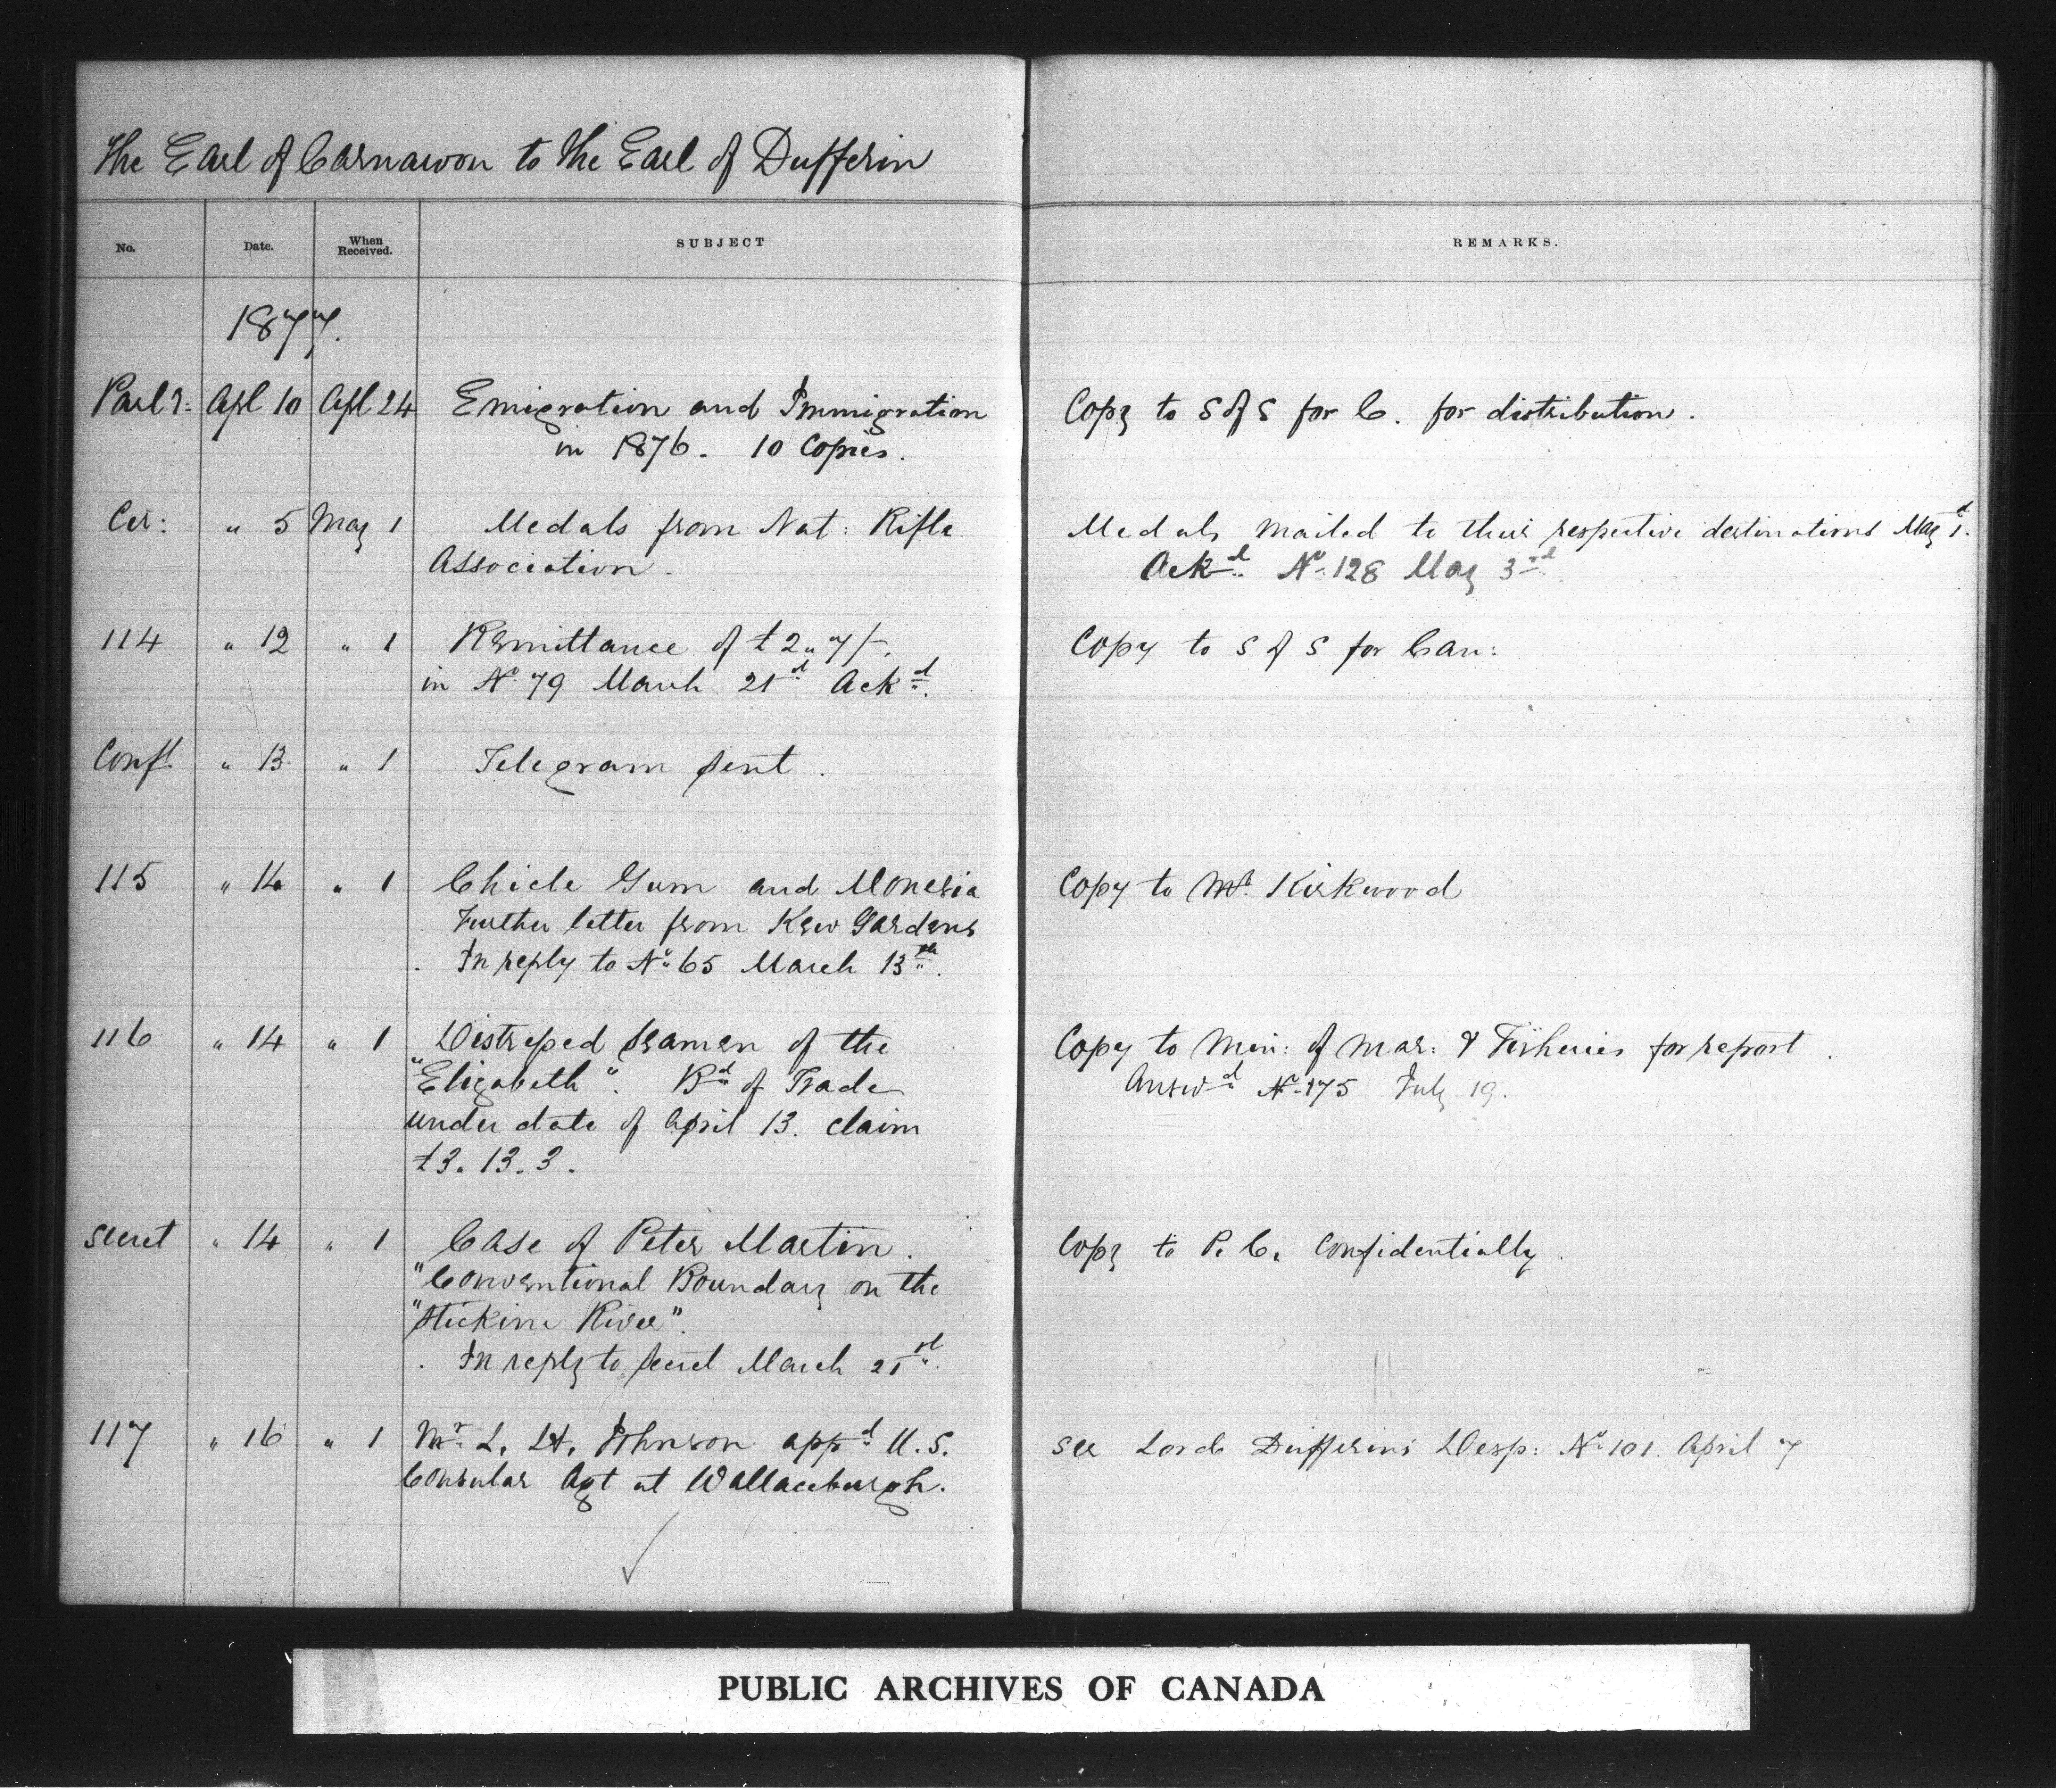 The Earl of Carnarvon to the Earl of Dufferin
No. Date. When Received. SUBJECT REMARKS.
1877.
Parl y: Apl 10 Apl 24 Emigration and Immigration Copy to S of S for C. for distribution.
in 1876. 10 Copies.
Cir: " 5 May 1 Medals from Nat: Rifle Medals mailed to their respective destinations May 1.
Association. Ackd No 128 May 3rd
114 " 12 " 1 Remittance of £2 " 7/-. Copy to S of S for Can:
in No 79 March 21st Ackd.
Confl " 13 " 1 Telegram sent.
115 " 14 " 1 Chicle Gum and Monesia Copy to Mr. Kirkwood
Further letter from Kew Gardens
In reply to No 65 March 13th.
116 " 14 " 1 Distressed Seamen of the Copy to Min: of Mar: & Fisheries for report.
"Elizabeth". Bd of Trade Answd No 175 July 19.
under date of April 13. claim
£3. 13. 3.
Secret " 14 " 1 Case of Peter Martin. Copy to P. C. Confidentially.
"Conventional Boundary on the
"Stickine River".
In reply to Secret March 21st.
117 " 16 " 1 Mr L. H. Johnson appd U.S. see Lord Dufferins Desp: No 101. April 7
Consular Agt at Wallaceburgh.
PUBLIC ARCHIVES OF CANADA